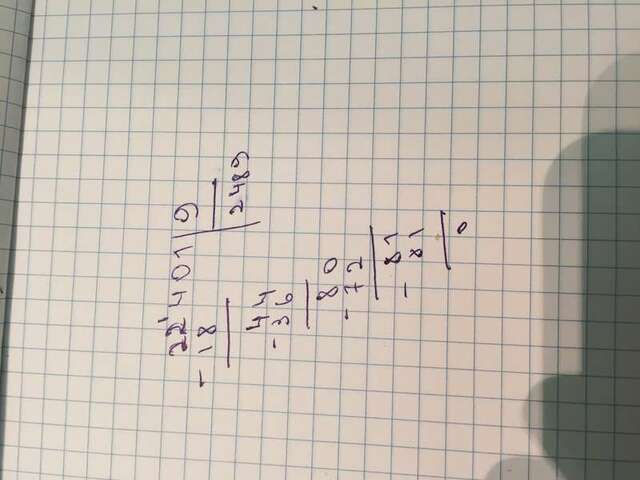 22'401 9
- 18 2489
44
- 36
80
- 72
81
- 81
0